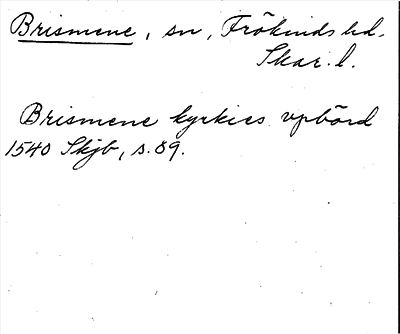 Brismene, sn, Frökinds hd.
Skar. l.
Brismene kyrkies vpbörd
1540 Skjb, s. 89.